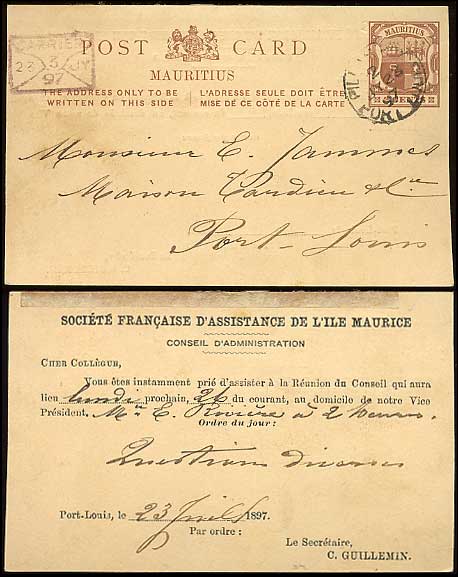 CARRIER
3
23 JY
97
POST CARD
MAURITIUS
THE ADDRESS ONLY TO BE
WRITTEN ON THIS SIDE
L'ADRESSE SEULE DOIT ÊTRE
MISE DE CE CÔTÉ DE LA CARTE
MAURITIUS
Monsieur E. Jammes
Maison Tardieu & Cie
Port-Louis
SOCIÉTÉ FRANÇAISE D'ASSISTANCE DE L'ILE MAURICE
CONSEIL D'ADMINISTRATION
CHER COLLÈGUE,
Vous êtes instamment prié d'assister à la Réunion du Conseil qui aura
lieu lundi prochain, 26 du courant, au domicile de notre Vice
Président. Mr E. Rivière à 2 heures.
Ordre du jour:
Questions diverses
Port-Louis, le 23 Juillet 1897.
Par ordre :
Le Secrétaire,
C. GUILLEMIN.